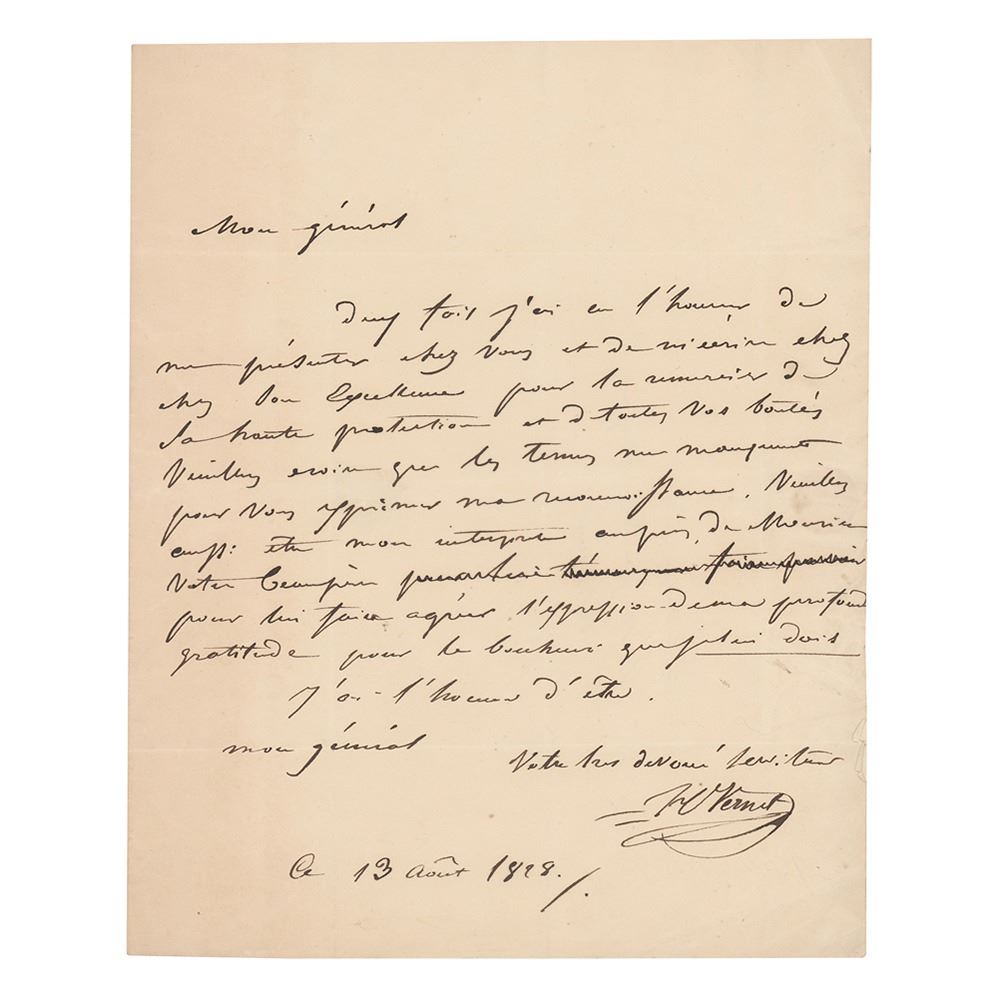 Mon général
Deux fois j'ai eu l'honneur de
me présenter chez vous et de m'écrire chez
chez Son Excellence pour la remercier de
Sa haute protection et de toutes vos bontés
Veuillez croire que les termes me manquent
pour vous exprimer ma reconnoissance. Veuillez
aussi être mon interprète auprès de Monsieur
votre beaupère
pour lui faire agréer l'expression de ma profonde
gratitude pour le bonheur que je lui dois
J'ai l'honneur d'être.
mon général
Votre très dévoué serviteur
H Vernet
Ce 13 août 1828.